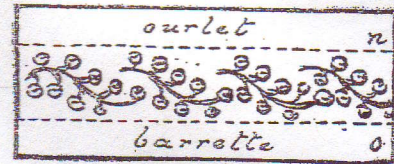 ourlet n
barrette o